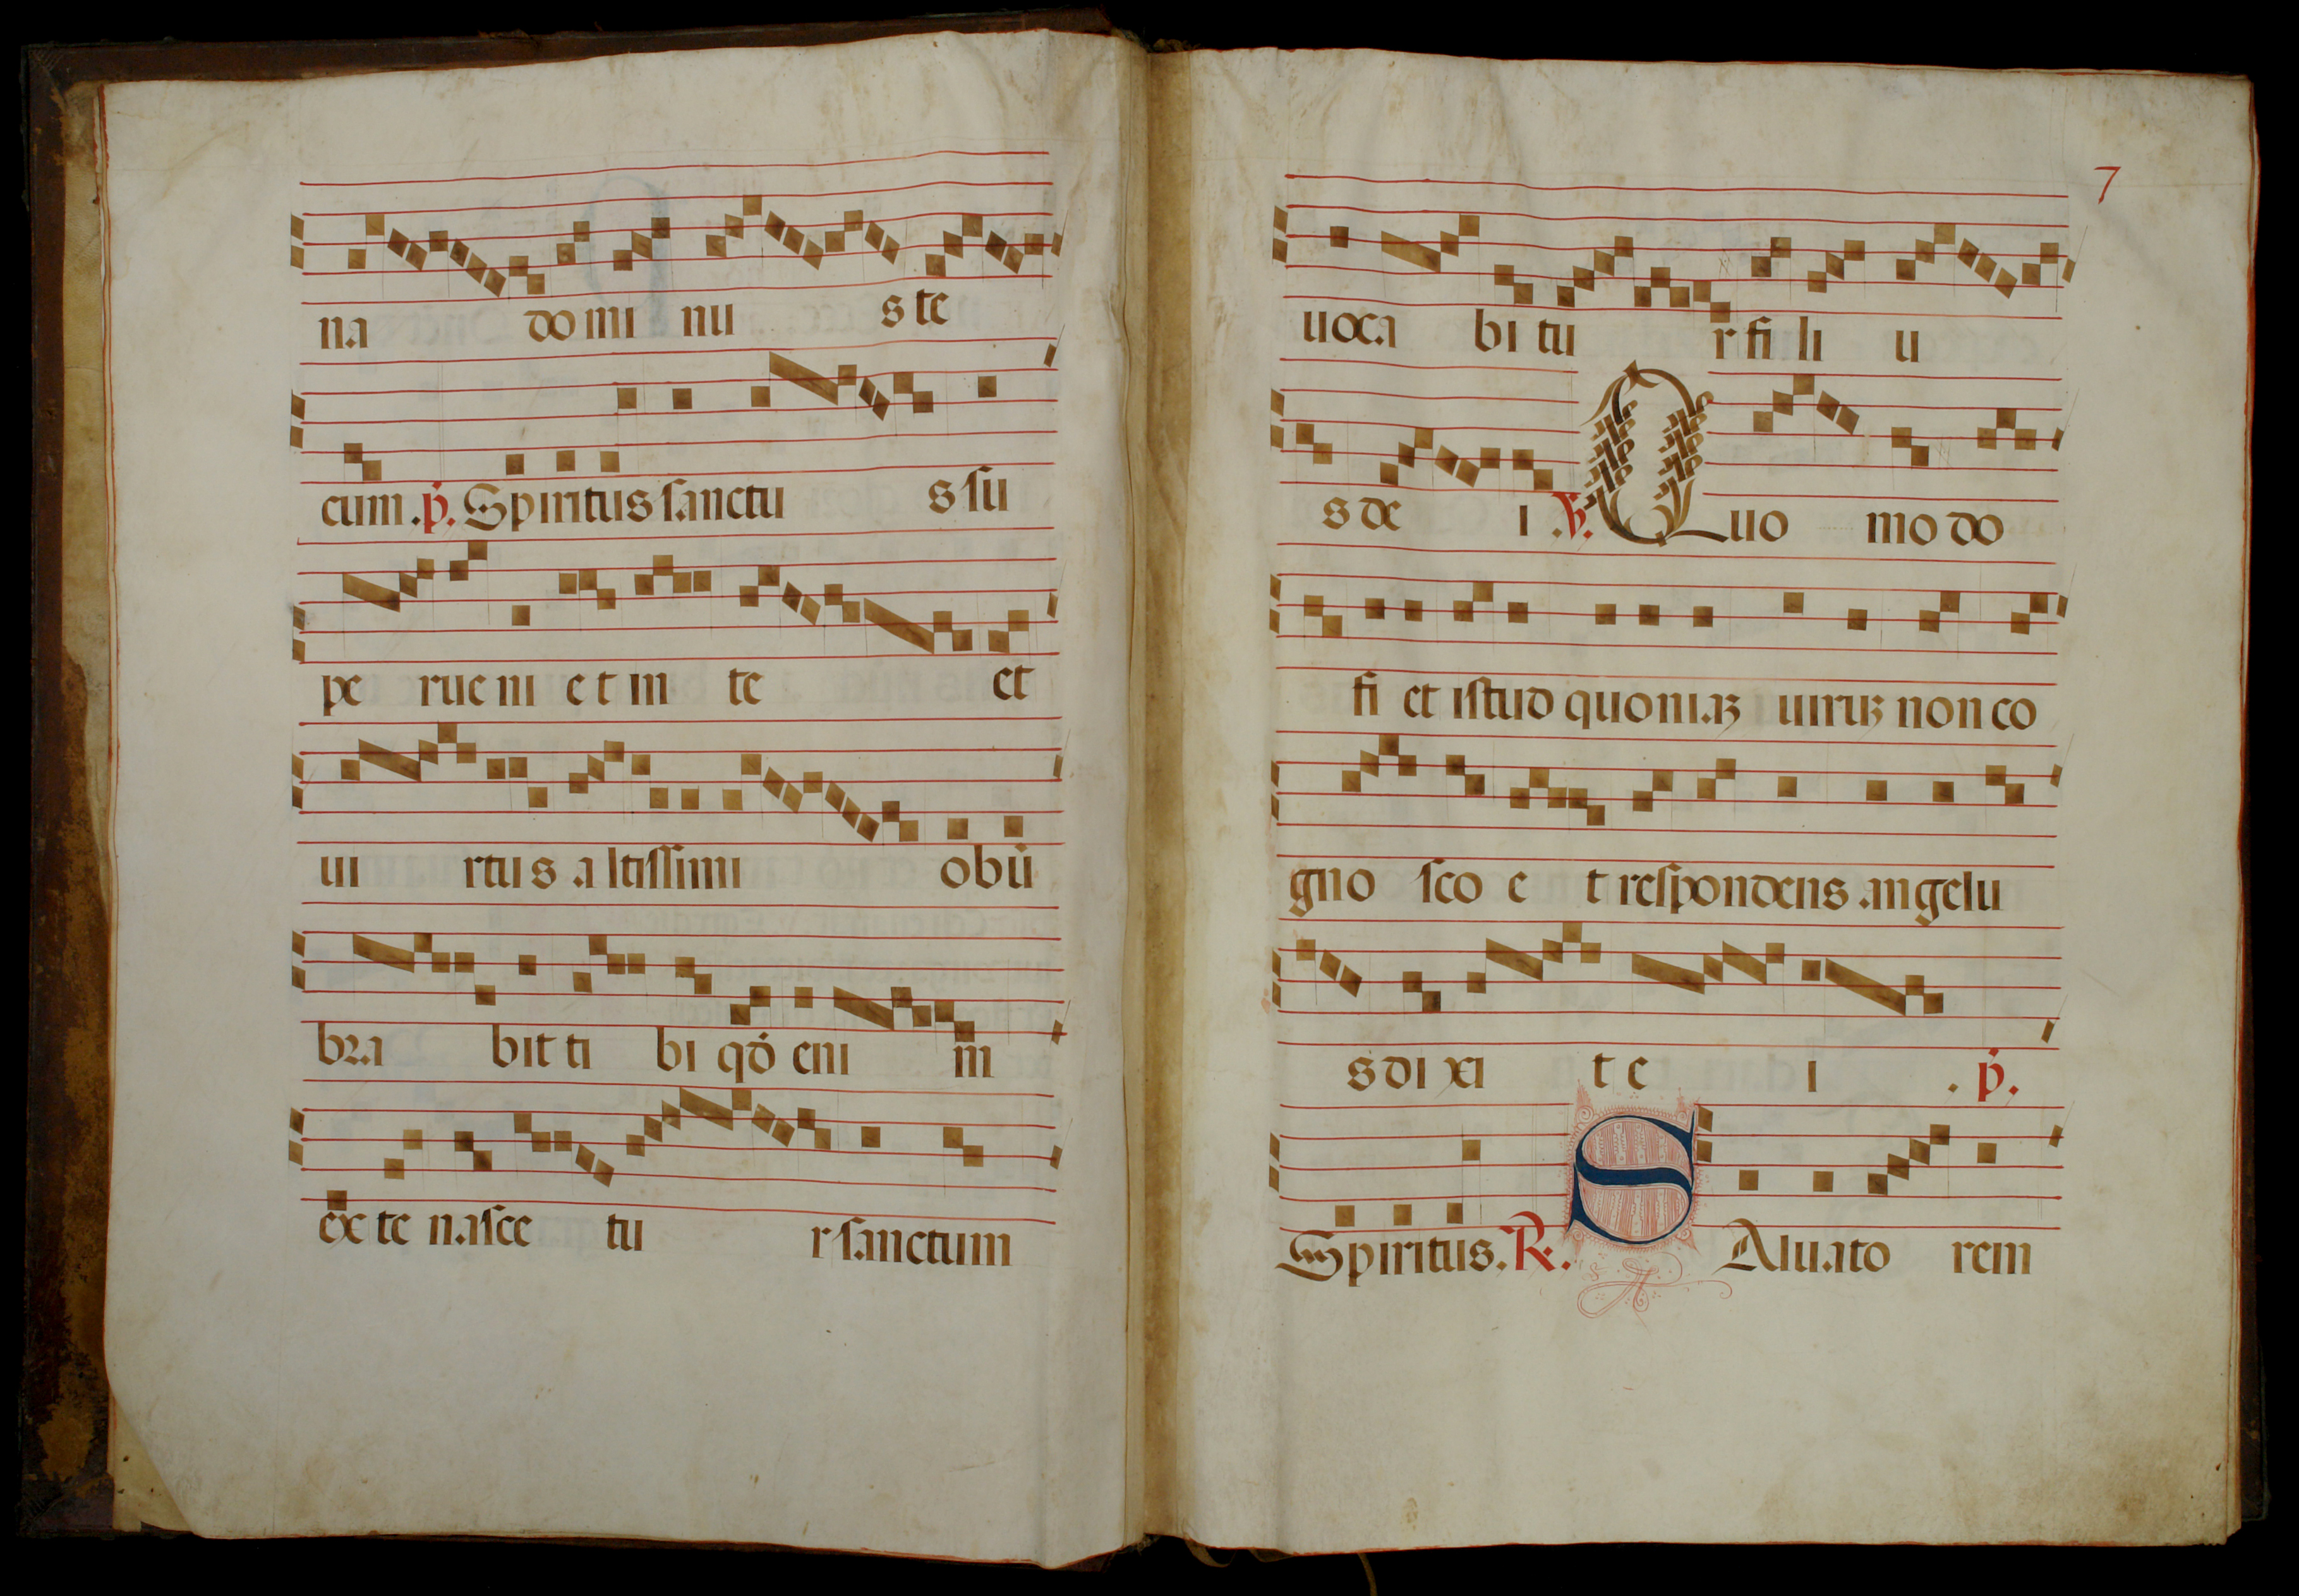 na do mi nu s te
cum . p. Spiritus sanctu s su
pe rue ni e t in te et
ui rtu s a ltissimi obū
bra bit ti bi qđ eni m
ex te nasce tu r sanctum
7
uoca bi tu r fi li u
s de i . V. Quo mo do
fi et istud quoniaꝫ uiruꝫ non co
gno sco e t respondens angelu
s di xi t e i . p.
Spiritus. R. SAluato rem